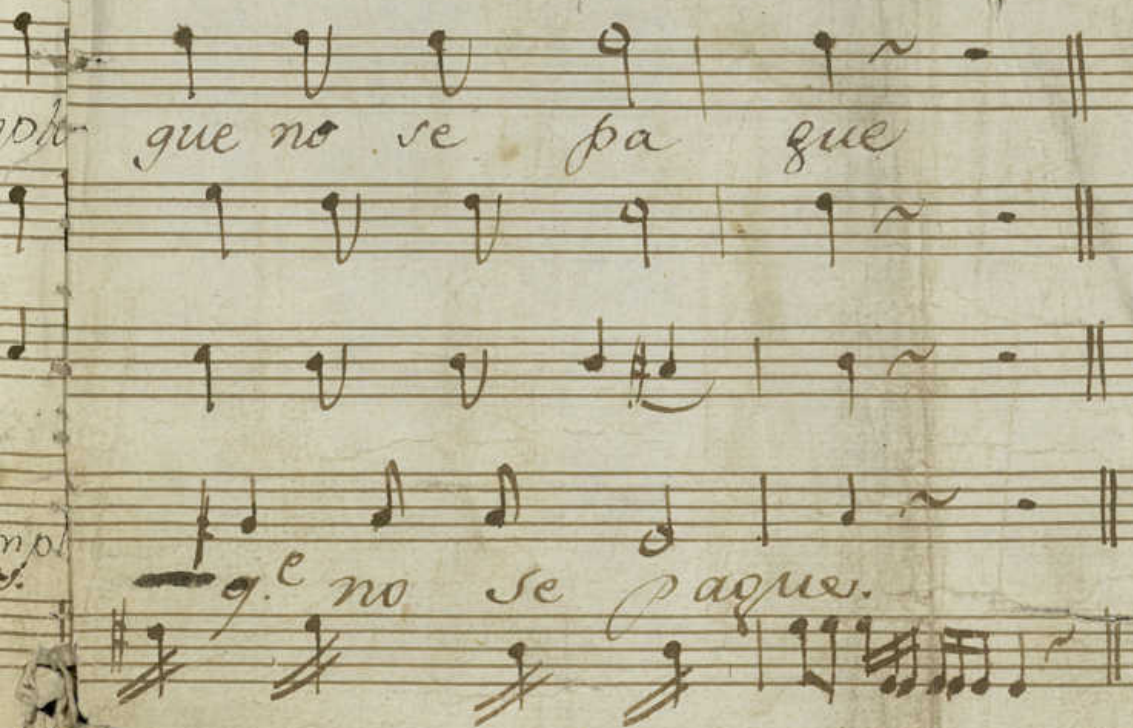 que no se pa que
q.e no se paque.